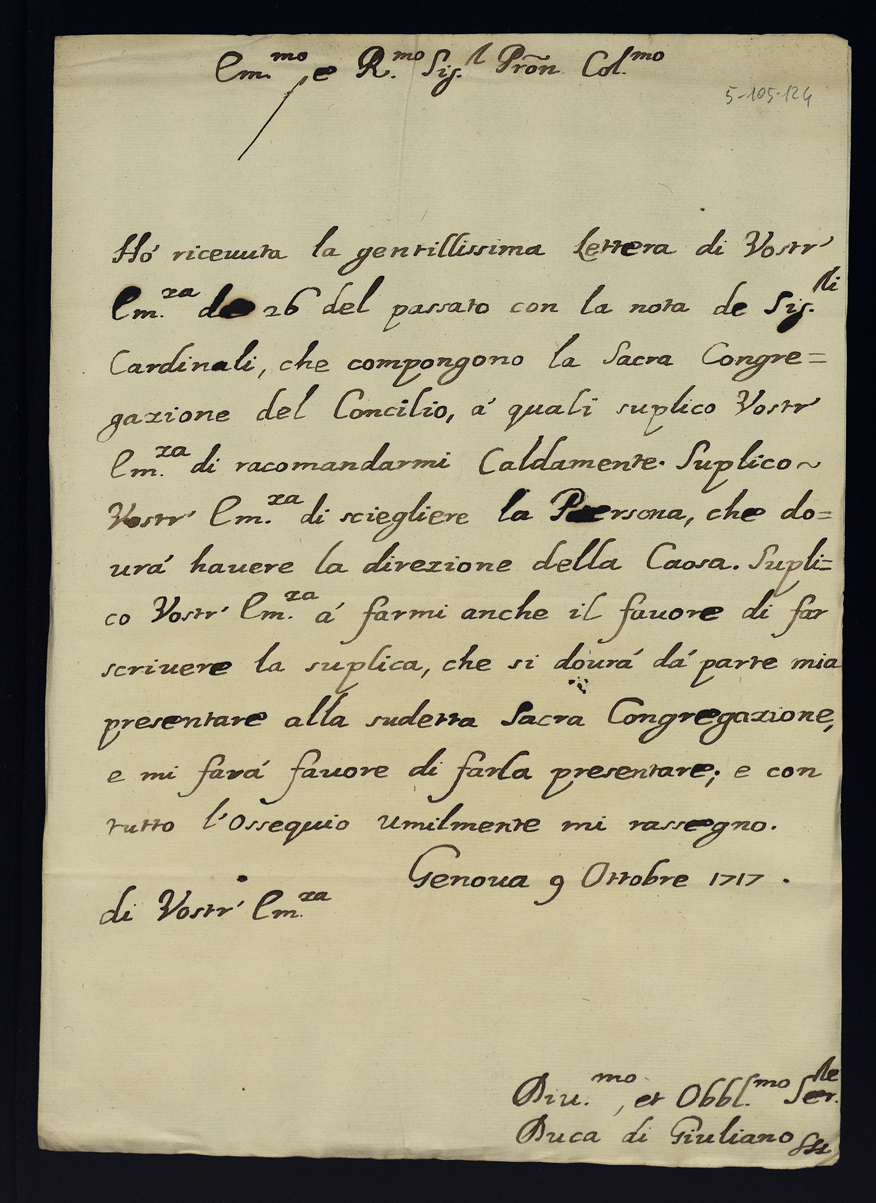 Em.mo, e R.mo Sig.r Prõn Col.mo
5-105-124
Hó riceuuta la gentillissima Lettera di Vostr'
Em.za de 26 del passato con la nota de Sig.ri
Cardinali, che compongono la Sacra Congre=
gazione del Concilio, á quali suplico Vostr'
Em.za di racomandarmi Caldamente. Suplico~
Vostr' Em.za di sciegliere la Persona, che do=
urá hauere la direzione della Caosa. Supli=
co Vostr' Em.za á farmi anche il fauore di far
scriuere la suplica, che si dourá dá parte mia
presentare alla sudetta Sacra Congregazione,
e mi fará fauore di farla presentare; e con
tutto l'Ossequio Umilmente mi rassegno.
Genoua 9 Ottobre 1717.
di Vostr' Em.za
Diu.mo, et Obbl.mo Ser.re
Duca di Giuliano